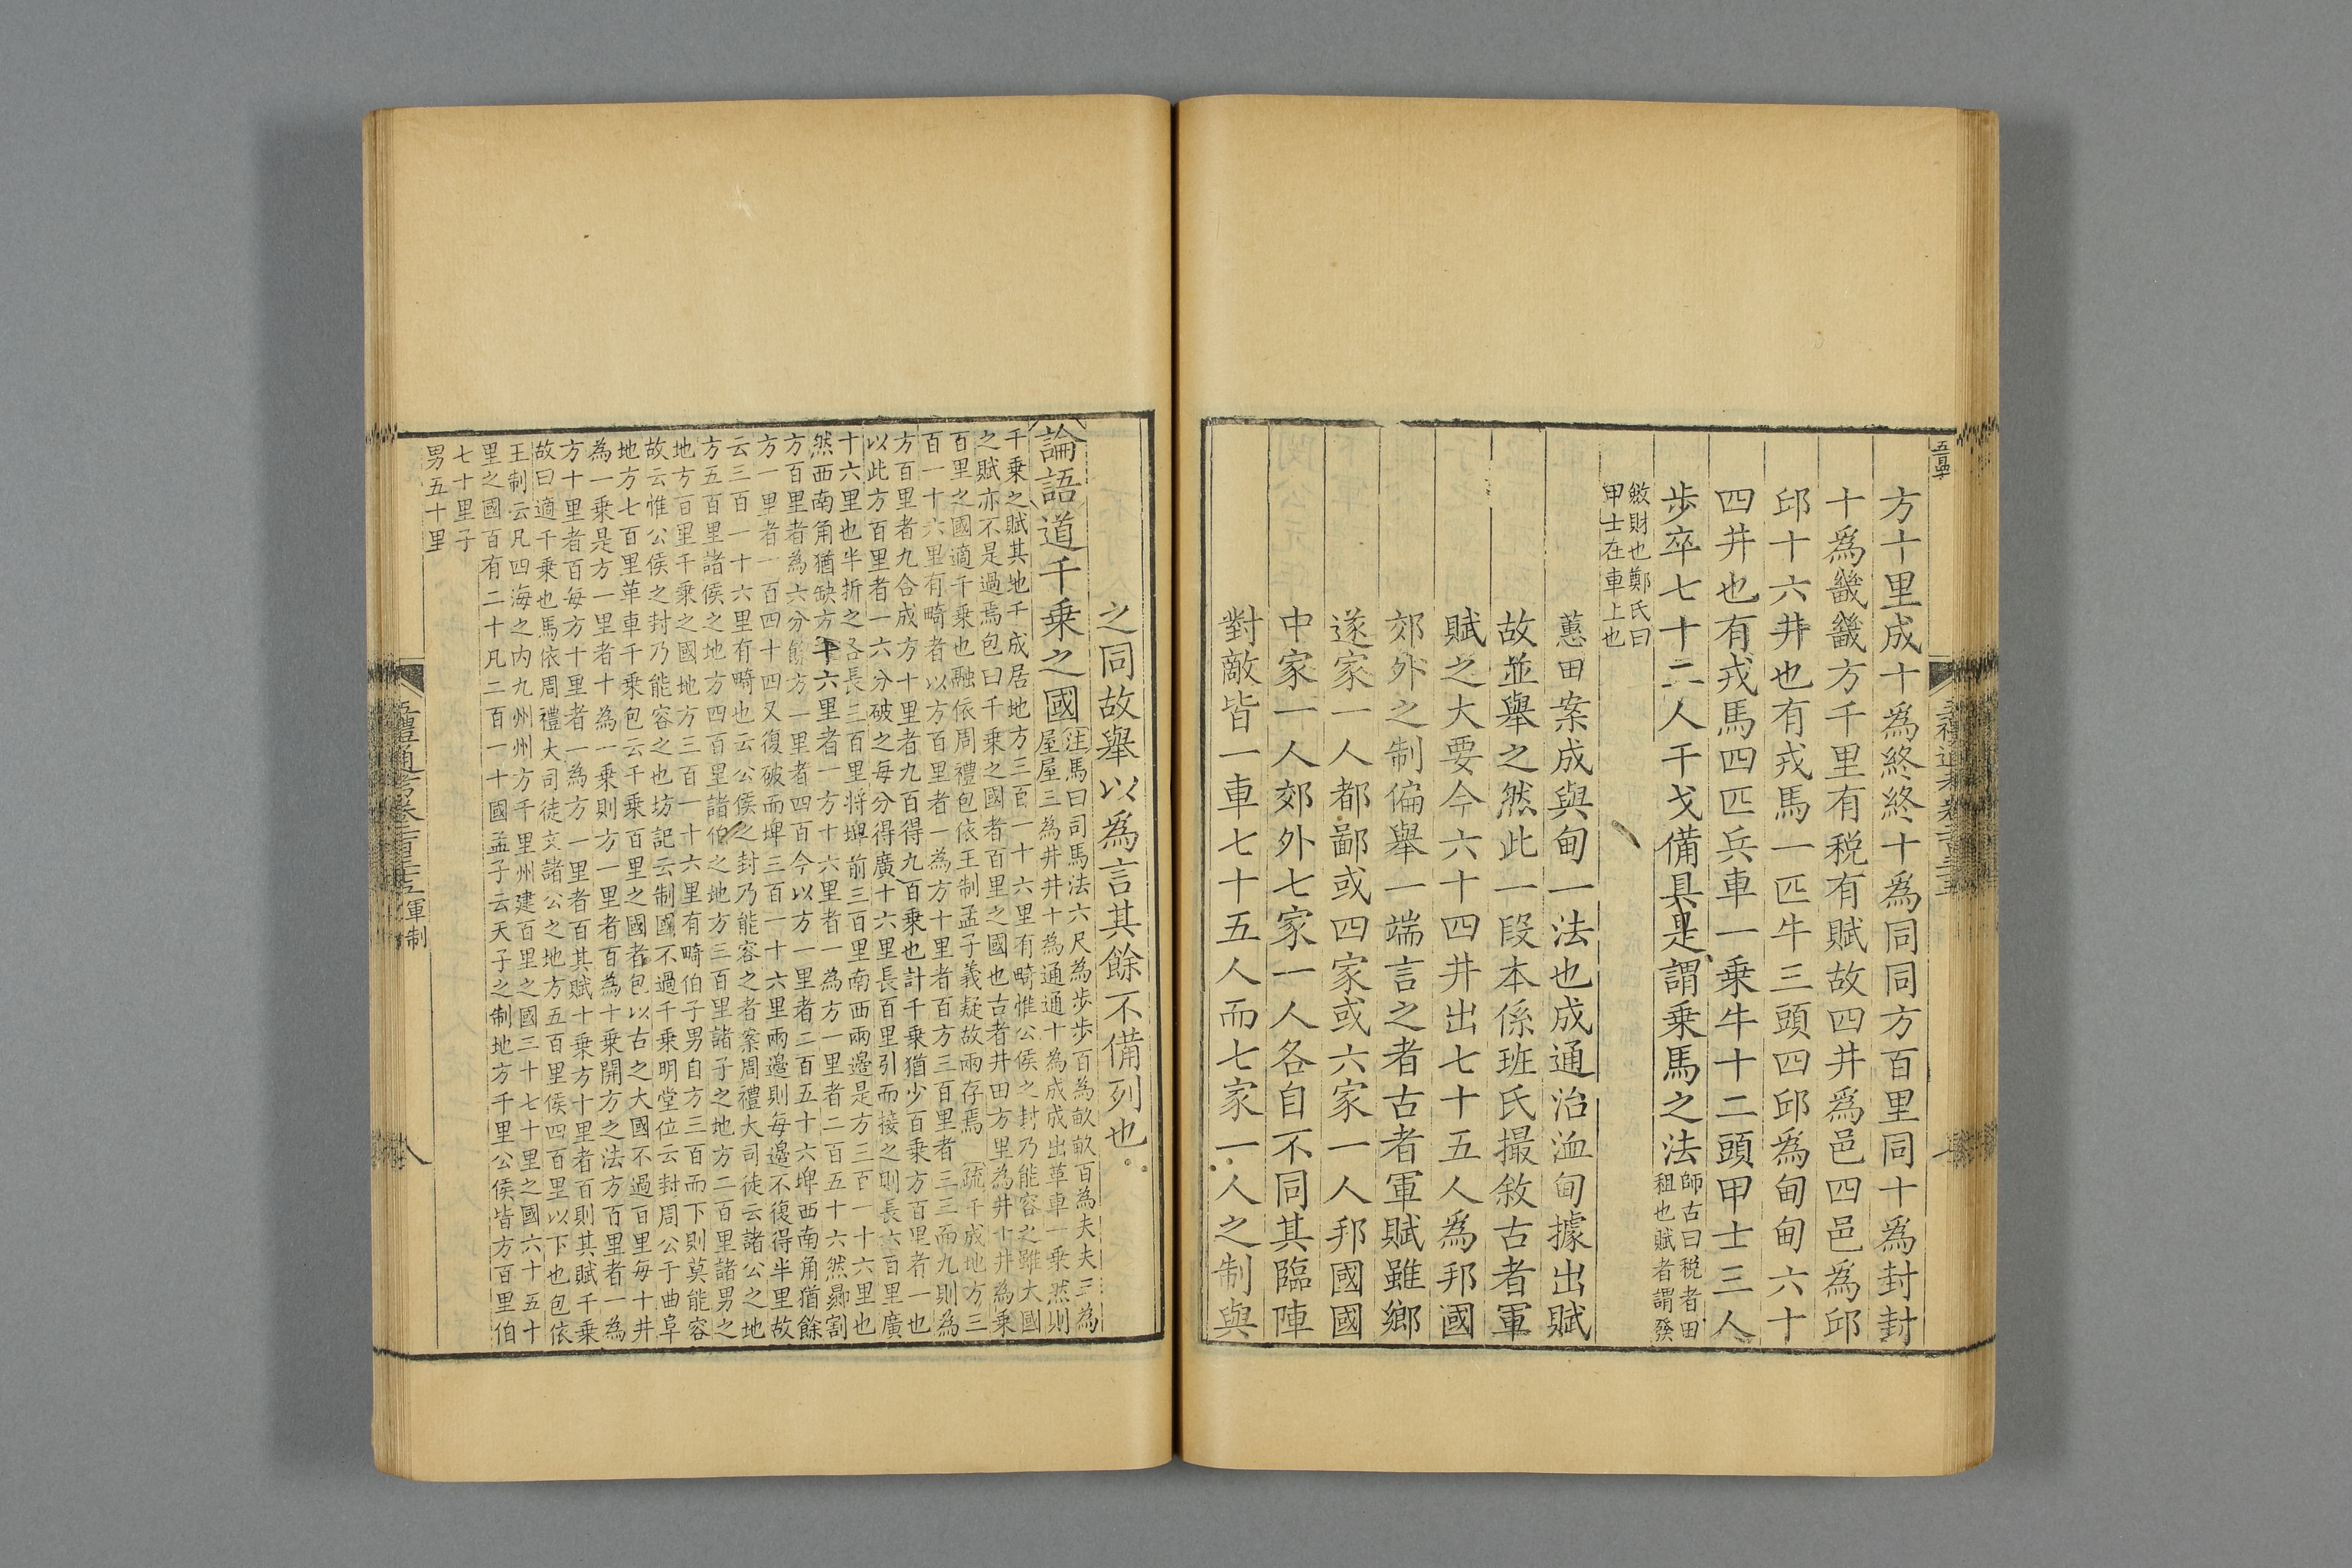 方十里成十為終終十為同同方百里同十為封封
十爲畿畿方千里有税有賦故四井爲邑四邑為邱
邱十六井也有戎馬一匹牛三頭四邱爲甸甸六十
四井也有戎馬四匹兵車一乗牛十二頭甲士三人
歩卒七十二人干戈備具是謂乗馬之法
師古曰税者田
租也賦者謂發
斂財也鄭氏曰
甲士在車上也
蕙田案成與甸一法也成通治洫甸據出賦
故並舉之然此一段本係班氏撮敘古者軍
賦之大要今六十四井出七十五人為邦國
郊外之制偏舉一端言之者古者軍賦雖鄉
遂家一人都鄙或四家或六家一人邦國國
中家一人郊外七家一人各自不同其臨陣
對敵皆一車七十五人而七家一人之制與
之同故舉以為言其餘不備列也
論語道千乗之國
注馬曰司馬法六尺為歩歩百為畝畝百為夫夫三為
屋屋三為井井十為通通十為成成出革車一乗然則
千乗之賦其地千成居地方三百一十六里有畸惟公侯之封乃能容之雖大國
之賦亦不是過焉包曰千乗之國者百里之國也古者井田方里為井十井為乗
百里之國適千乗也融依周禮包依王制孟子義疑故兩存焉 疏千成地方三
百一十六里有畸者以方百里者一為方十里者百方三百里者三三而九則為
方百里者九合成方十里者九百得九百乗也計千乗猶少百乗方百里者一也
以此方百里者一六分破之每分得廣十六里長百里引而接之則長六百里廣
十六里也半折之各長三百里将埤前三百里南西兩邉是方三百一十六里也
然西南角猶缺方十六里者一方十六里者一為方一里者二百五十六然曏割
方百里者為六分餘方一里者四百今以方一里者二百五十六埤西南角猶餘
方一里者一百四十四又復破而埤三百一十六里兩邉則每邉不復得半里故
云三百一十六里有畸也云公侯之封乃能容之者案周禮大司徒云諸公之地
方五百里諸侯之地方四百里諸伯之地方三百里諸子之地方二百里諸男之
地方百里千乘之國地方三百一十六里有畸伯子男自方三百而下則莫能容
故云惟公侯之封乃能容之也坊記云制國不過千乗明堂位云封周公于曲阜
地方七百里革車千乗包云千乗百里之國者包以古之大國不過百里每十井
為一乗是方一里者十為一乗則方一里者百為十乗開方之法方百里者一為
方十里者百每方十里者一為方一里者百其賦十乗方十里者百則其賦千乗
故曰適千乗也馬依周禮大司徒文諸公之地方五百里侯四百里以下也包依
王制云凡四海之内九州州方千里州建百里之國三十七十里之國六十五十
里之國百有二十凡二百一十國孟子云天子之制地方千里公侯皆方百里伯
七十里子
男五十里
軍制
八